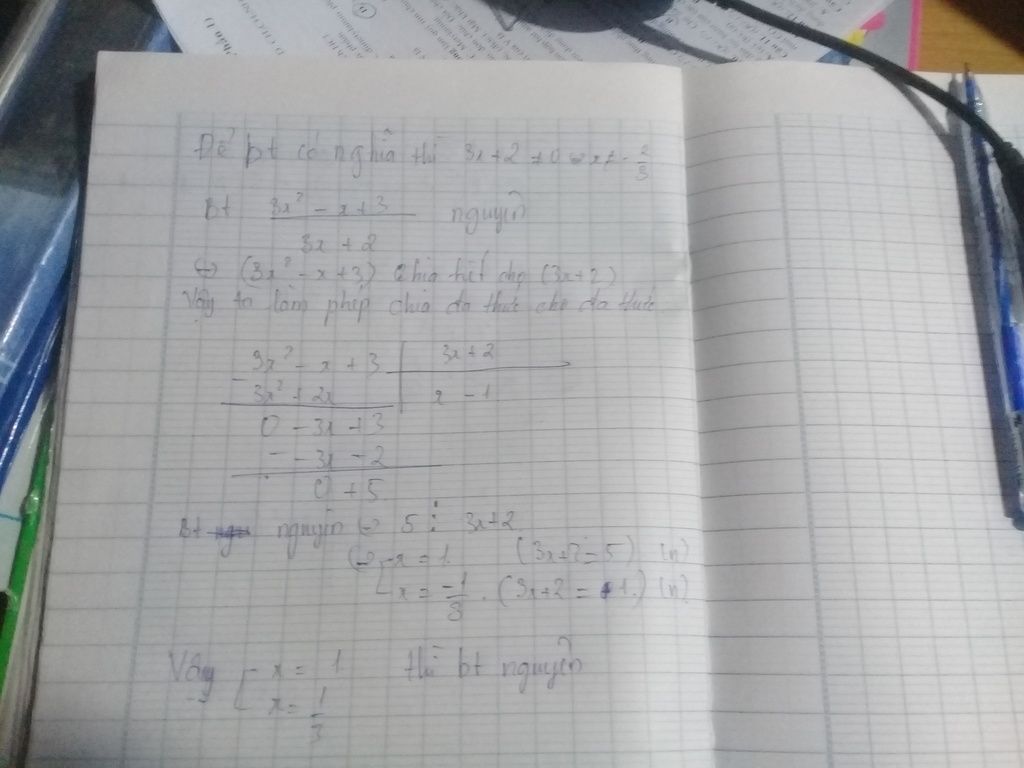 Để bt có nghĩa thì 3x+2 ≠ 0 ⇔ x ≠ -2/3
Bt (3x² - x + 3)/(3x + 2) nguyên
⇔ (3x² - x + 3) chia hết cho (3x+2)
Vậy ta làm phép chia đa thức cho đa thức
3x² - x + 3 | 3x+2
- 3x² + 2x | x - 1
0 - 3x + 3
- - 3x - 2
0 + 5
Bt nguyên ⇔ 5 ⋮ 3x+2
⇔ [ x = 1 (3x+2 = 5) (n)
[ x = -1/3 . (3x+2 = 1) (n)
Vậy [ x = 1 thì bt nguyên
x = 1/3